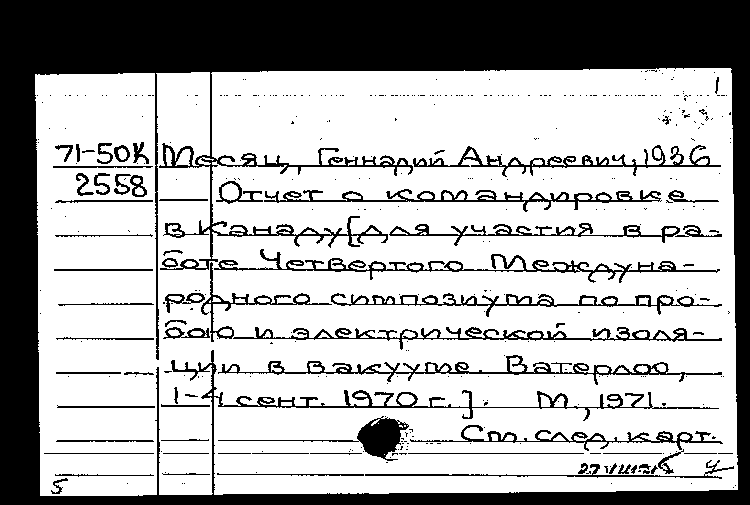 1
71-50К Месяц, Геннадий Андреевич, 1936
2558 Отчет о командировке
в Канаду [для участия в ра-
боте Четвертого Междуна-
родного симпозиума по про-
бою и электрической изоля-
ции в вакууме. Ватерлоо,
1-4 сент. 1970 г.]. М., 1971.
См. след. карт.
5